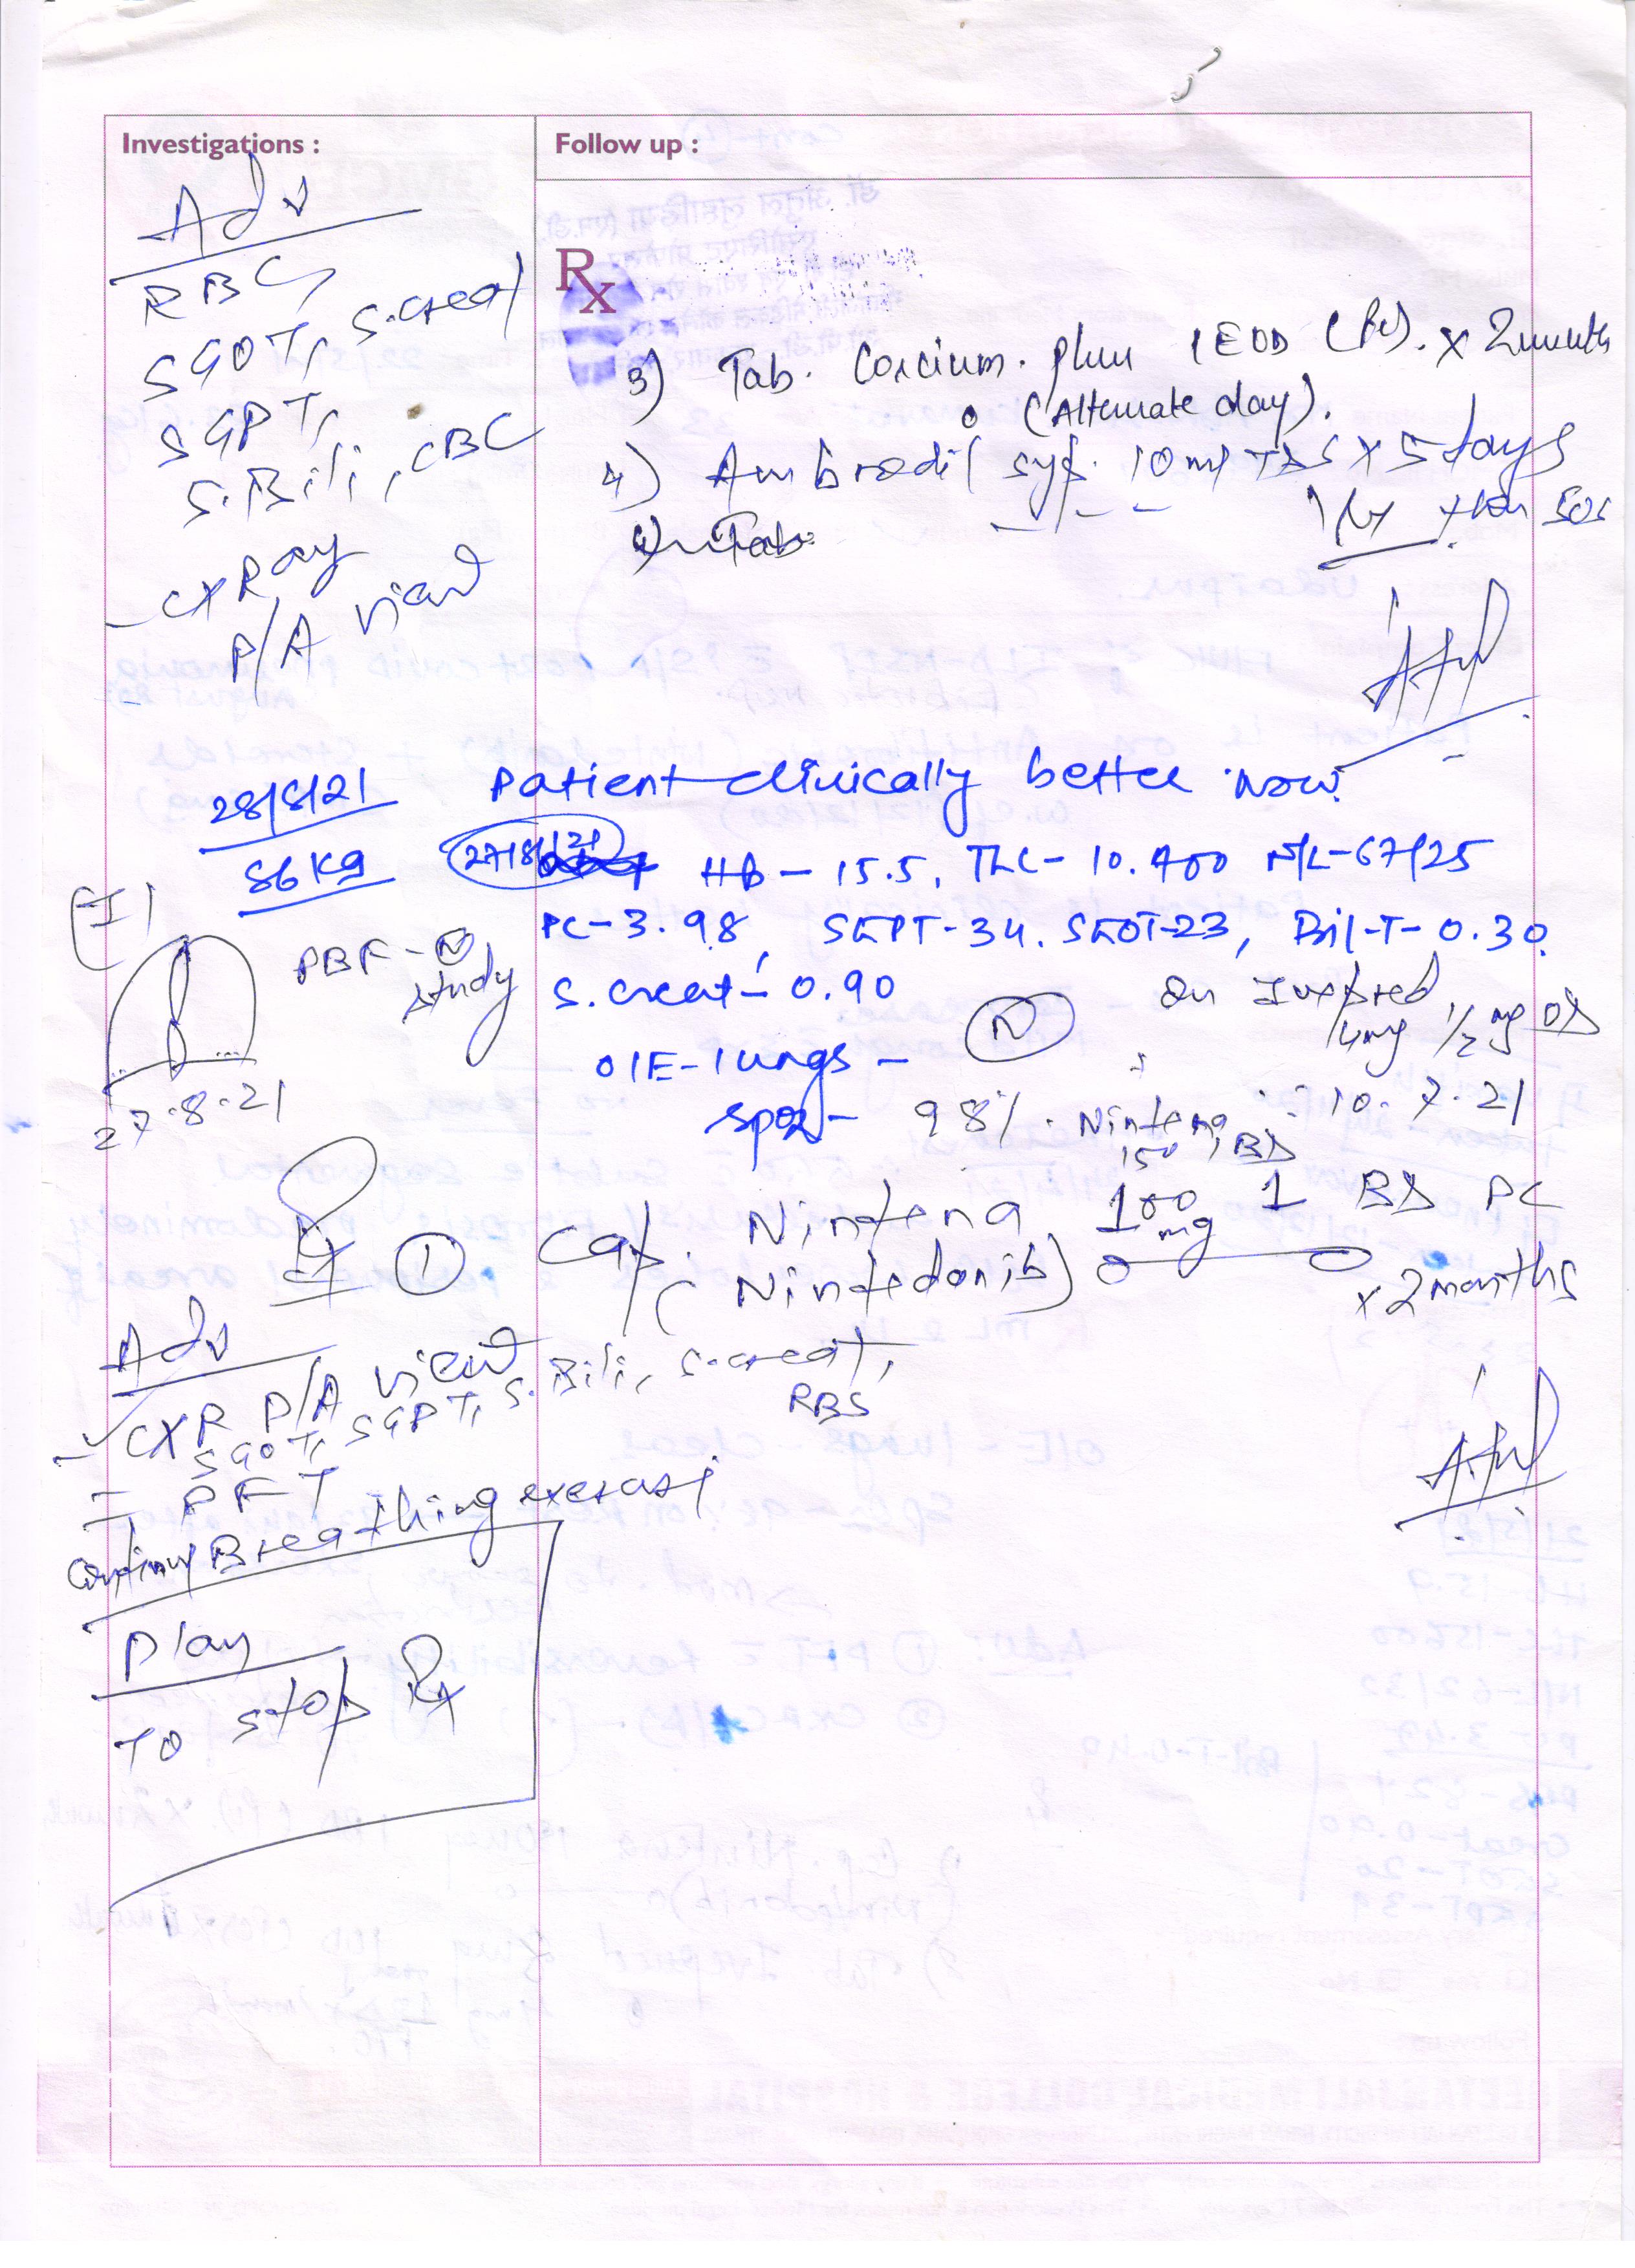 Investigations :
Follow up :
Adv
RBS
SGOT, S.creat
SGPT,
S.Bili, CBC
- CXRay
P/A view
Rx
3) Tab. Corcium. plus 1EOD (PC). x 2 month
(Alternate day).
4) Ambrodil syp. 10 ml TDS x 5 days
then SOS
Tab
28/8/21 Patient clinically better now.
86 Kg 27/8/21 Hb - 15.5, TLC - 10.400 N/L-67/25
PC-3.98, SGPT-34. SGOT-23, Bil-T-0.30
PBF - N study
S. creat - 0.90
On Ivepred
4mg 1/2 mg OD
O/E - lungs - N
27.8.21
SpO2 - 98%. Nintena
150 BD
10.7.21
Rx
1 Cap. Nintena 100 mg 1 BD PC
(Nintedanib)
x 2 months
Adv
- CXR P/A view
SGOT, SGPT, S.Bili, S.creat,
RBS
= PFT
Continue Breathing exercise
Plan
To stop Rx